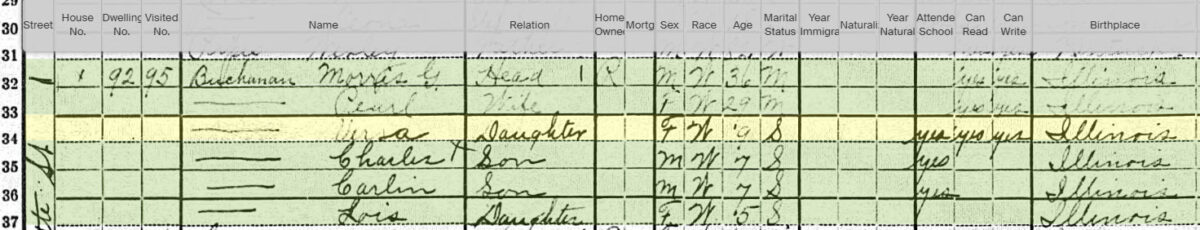 Street House No. Dwelling No. Visited No. Name Relation Home Owned Mortg Sex Race Age Marital Status Year Immigra Naturaliz Year Natural Attended School Can Read Can Write Birthplace
29
30
31
32 1 92 95 Buchanan Morris G. Head 1 R M W 36 M yes yes Illinois
33 —— Pearl Wife F W 29 M yes yes Illinois
34 —— Daughter F W 9 S yes yes yes Illinois
35 —— Charles + Son M W 7 S yes Illinois
36 —— Carlin Son M W 7 S yes Illinois
37 —— Lois Daughter F W 5 S Illinois